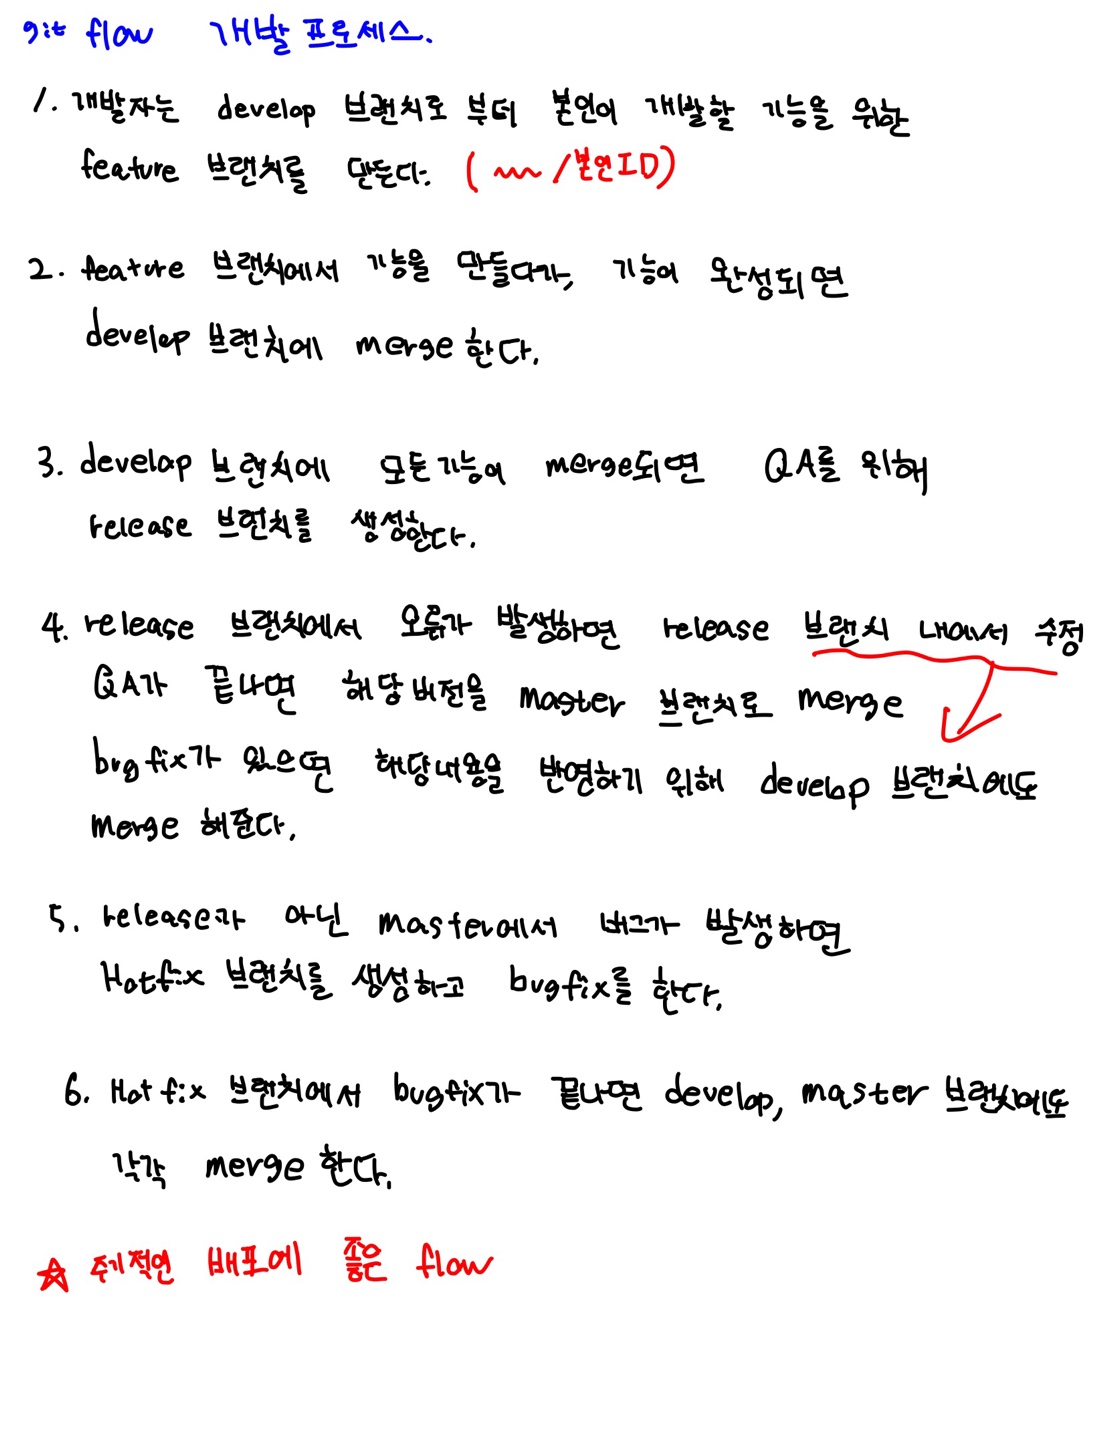 git flow 개발 프로세스.
1. 개발자는 develop 브랜치로 부터 본인이 개발할 기능을 위한
feature 브랜치를 만든다. ( /본인ID)
2. feature 브랜치에서 기능을 만들다가, 기능이 완성되면
develop 브랜치에 merge 한다.
3. develop 브랜치에 모든기능이 merge되면 QA를 위해
release 브랜치를 생성한다.
4. release 브랜치에서 오류가 발생하면 release 브랜치 내에서 수정
QA가 끝나면 해당버전을 master 브랜치로 merge
bugfix가 있으면 해당내용을 반영하기 위해 develop 브랜치에도
merge 해준다.
5. release가 아닌 master에서 버그가 발생하면
Hotfix 브랜치를 생성하고 bugfix를 한다.
6. Hotfix 브랜치에서 bugfix가 끝나면 develop, master 브랜치에도
각각 merge 한다.
☆ 주기적인 배포에 좋은 flow